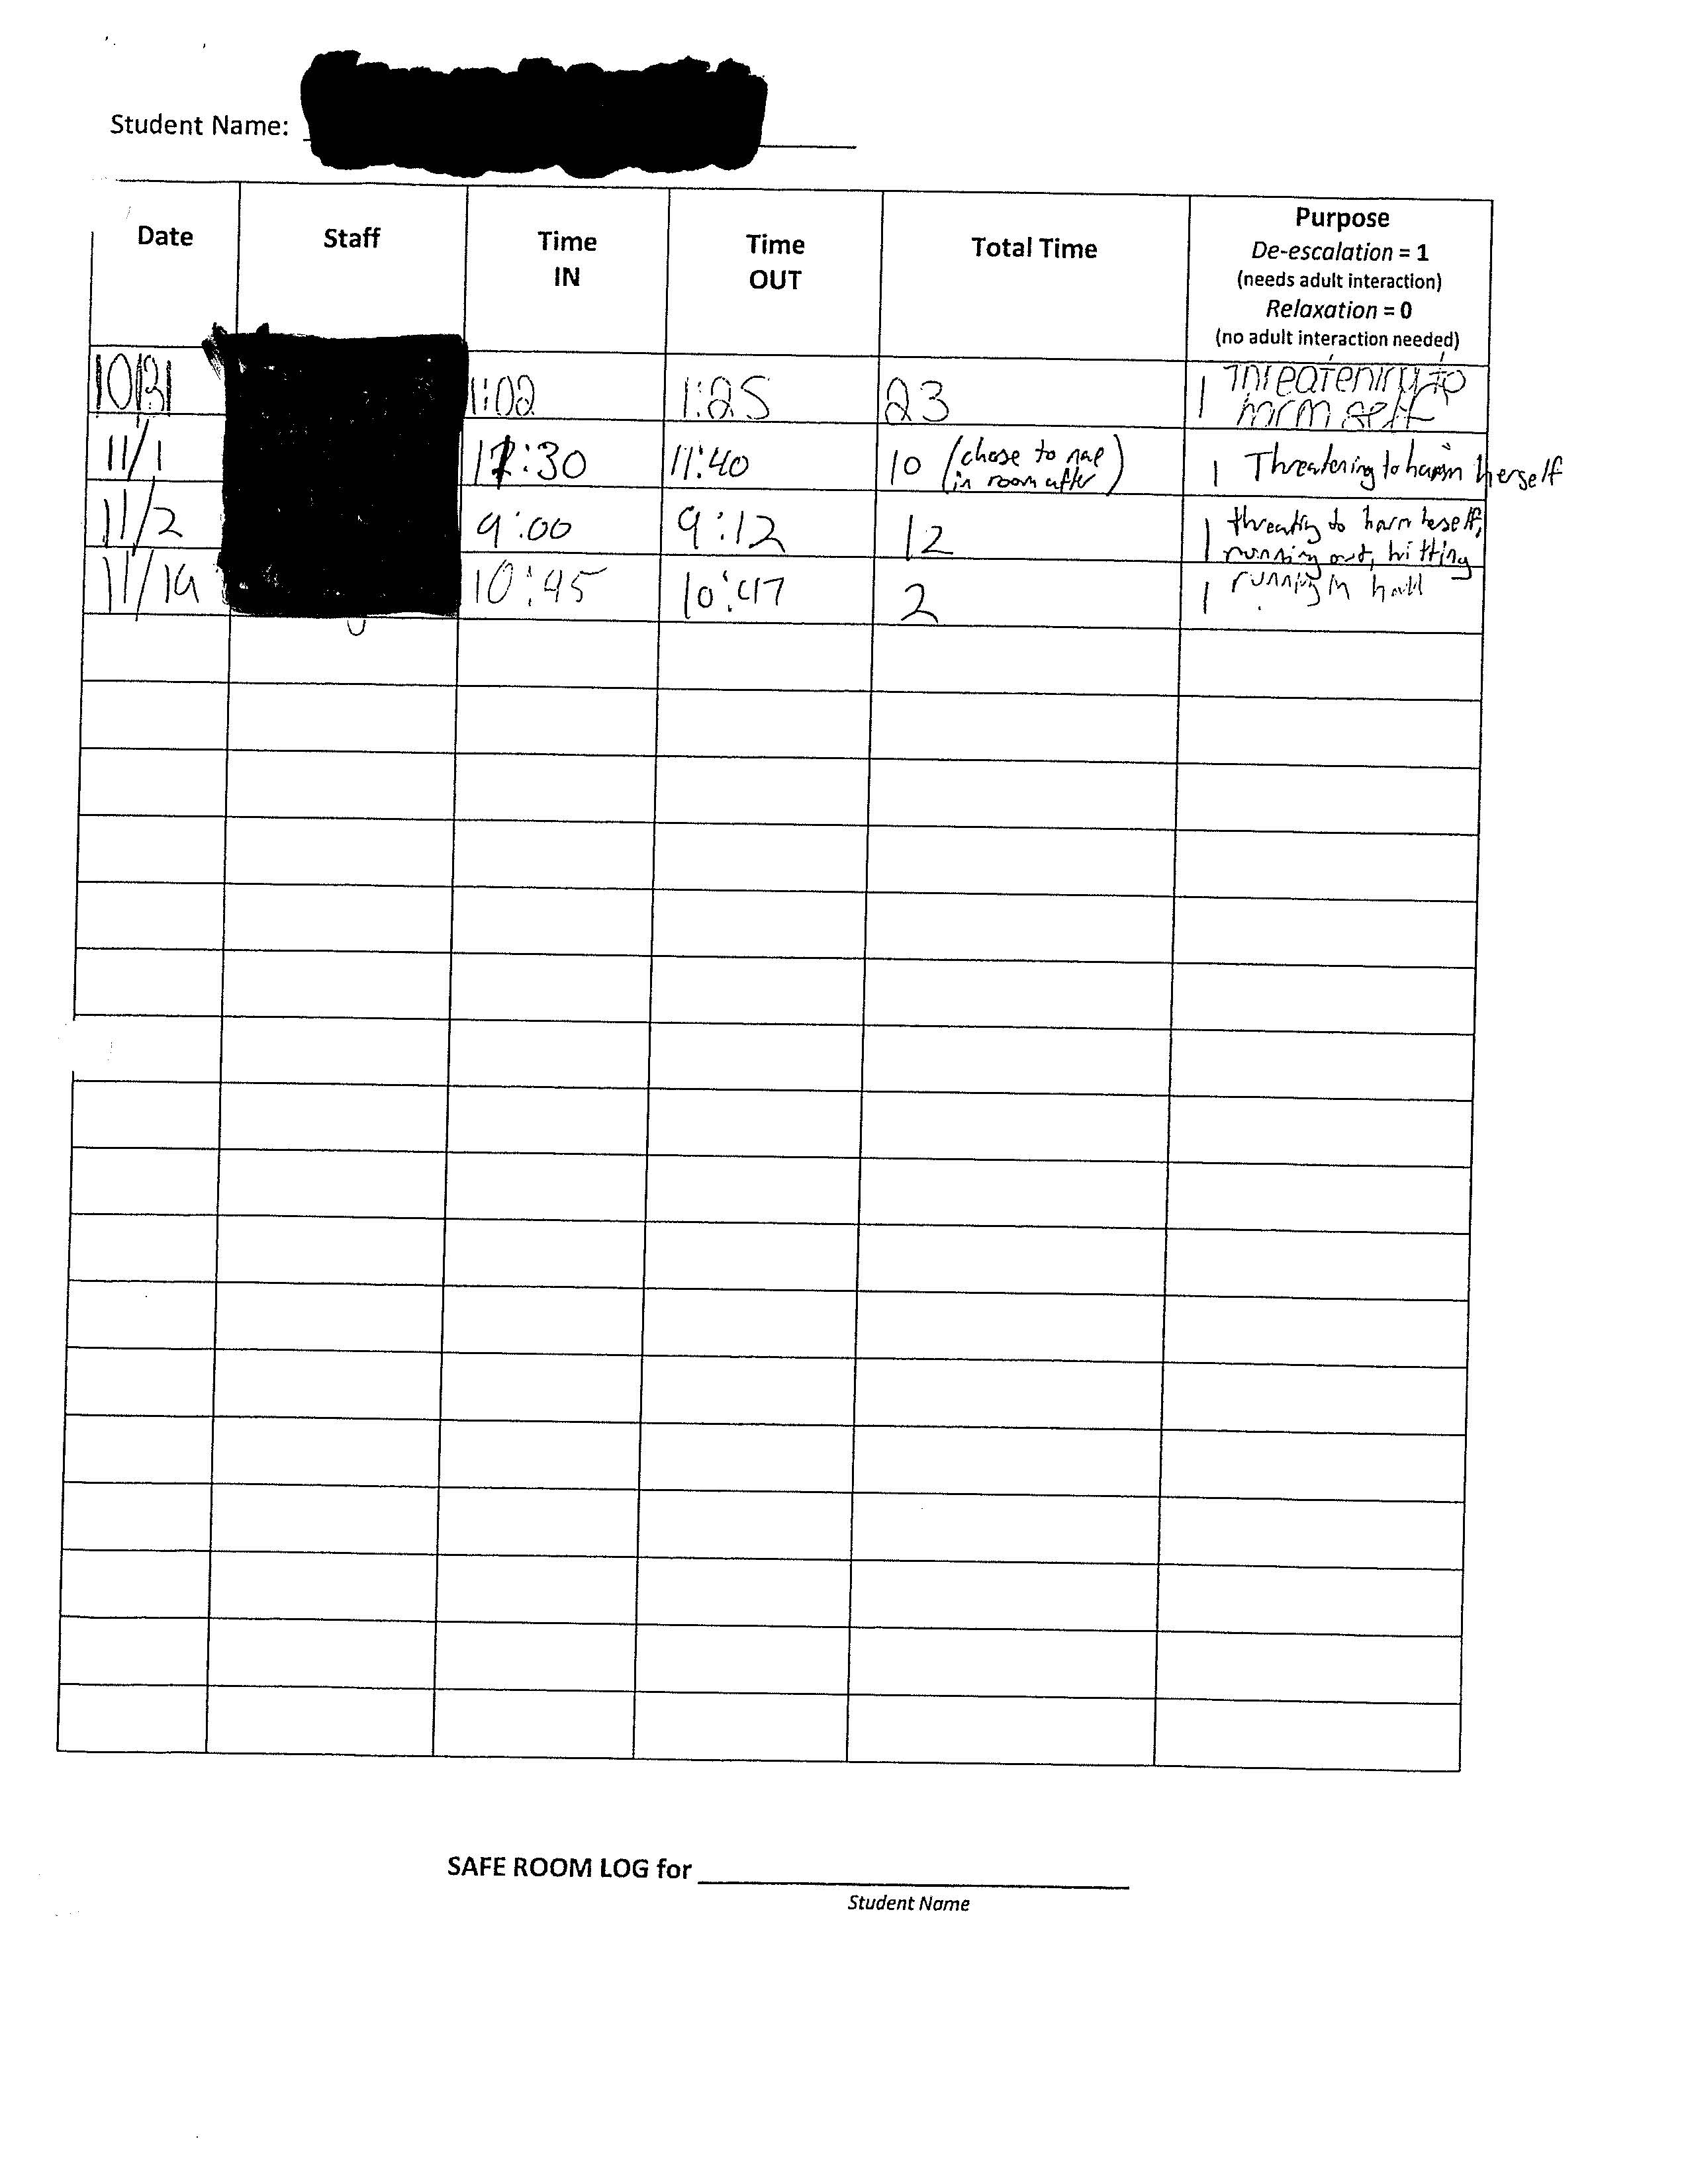 Student Name:
Date Staff Time IN Time OUT Total Time Purpose
De-escalation = 1
(needs adult interaction)
Relaxation = 0
(no adult interaction needed)
10/31 1:02 1:25 23 1 Threatening to
harm self
11/1 11:30 11:40 10 (chose to nap in room after) 1 Threatening to harm herself
11/2 9:00 9:12 12 1 threating to harm herself,
running out, hitting
11/19 10:45 10:47 2 1 running in hall
SAFE ROOM LOG for
Student Name